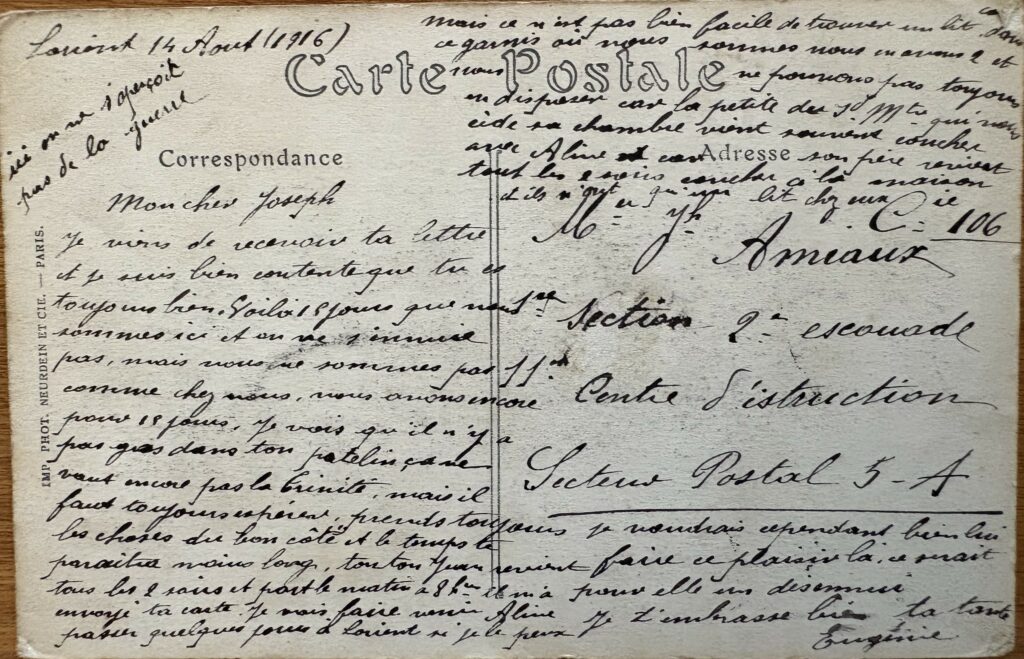 Lorient 14 Aout (1916)
ici on ne s'aperçoit
pas de la guerre
Carte Postale
Correspondance
Mon cher Joseph
Je viens de recevoir ta lettre
et je suis bien contente que tu es
toujours bien. Voilà 15 jours que nous
sommes ici et on ne s'ennuie
pas, mais nous ne sommes pas
comme chez nous, nous avons encore
pour 15 jours, Je vois qu'il n'y a
pas gras dans ton patelin ça ne
vaut encore pas la Trinité, mais il
faut toujours espérer, prends toujours
les choses du bon côté et le temps te
paraitra moins long, tonton Yvan revient
tous les 2 soirs et part le matin à 8 h il m'a
envoyé ta carte. Je vais faire venir Aline
passer quelques jours à Lorient si je le peux
mais ce n'est pas bien facile de trouver un lit, dans
ce garnis où nous sommes nous en avons 2 et
nous ne pouvons pas toujours
en disposer car la petite du qui nous
cède sa chambre vient souvent coucher
avec Aline et car son père revient
tout les 2 soirs coucher à la maison
et ils n'ont qu'un lit chez eux
Adresse
Mr Jh Amiaux Cie 106
1re Section 2e escouade
11e Centre d'istruction
Secteur Postal 5-A
je voudrais cependant bien lui
faire ce plaisir la, ce serait
pour elle un désennui
Je t'embrasse bien ta tante
Eugénie
IMP. PHOT. NEURDEIN ET CIE. — PARIS.